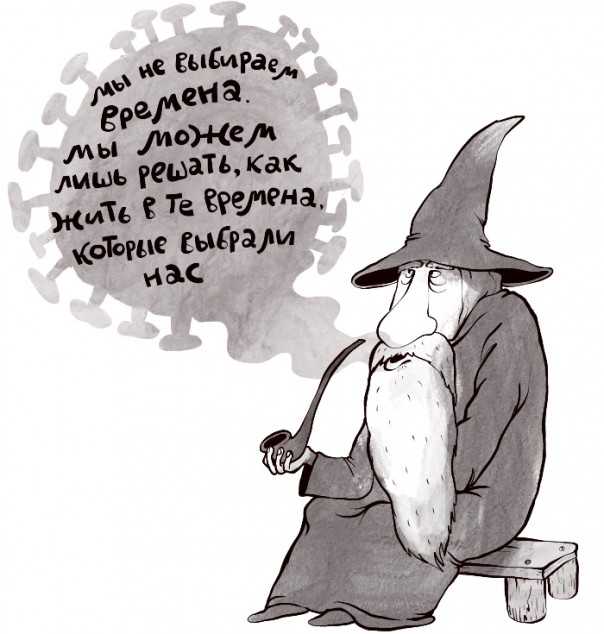 мы не выбираем
времена.
мы можем
лишь решать, как
жить в те времена,
которые выбрали
нас